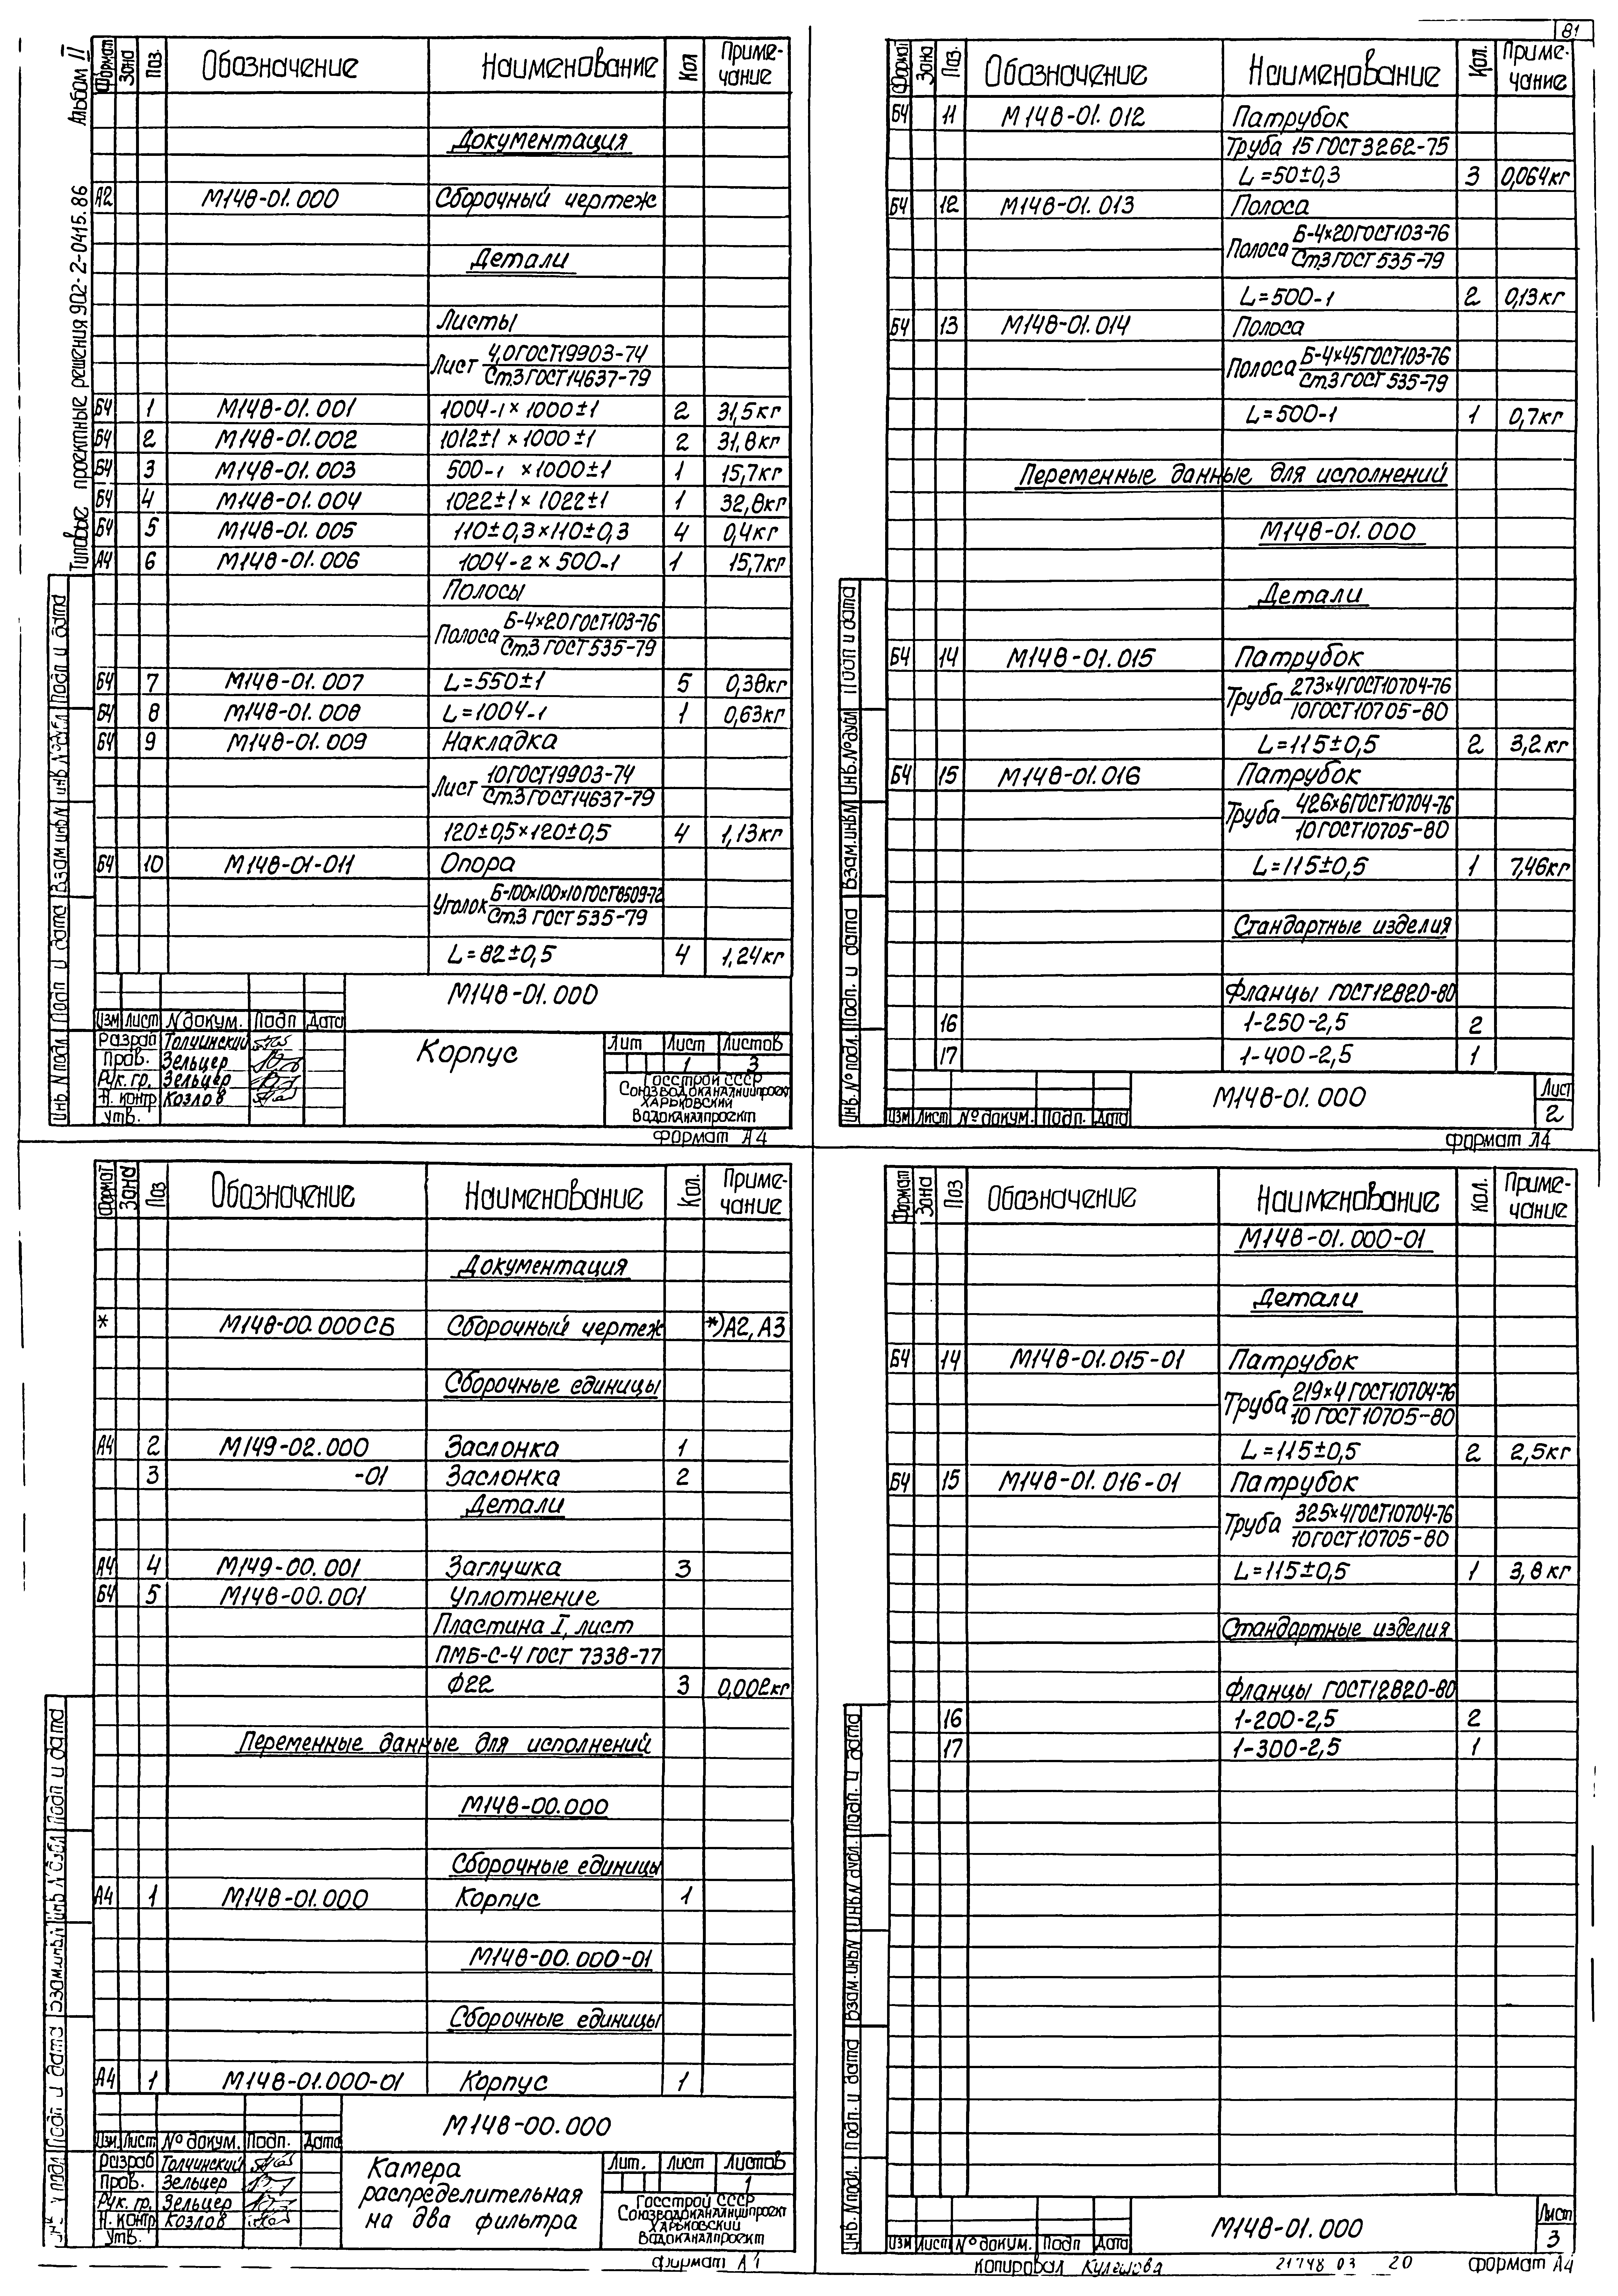 81
Альбом II
Типовые проектные решения 902-2-0415.86
Формат Зона Поз. Обозначение Наименование Кол Приме-чание
Документация
А2 М148-01.000 Сборочный чертеж
Детали
Листы
Лист 4,0 ГОСТ19903-74
Ст.3 ГОСТ14637-79
Б4 1 М148-01.001 1004-1 × 1000±1 2 31,5кг
Б4 2 М148-01.002 1012±1 × 1000±1 2 31,8кг
Б4 3 М148-01.003 500-1 × 1000±1 1 15,7кг
Б4 4 М148-01.004 1022±1 × 1022±1 1 32,8кг
Б4 5 М148-01.005 110±0,3×110±0,3 4 0,4кг
А4 6 М148-01.006 1004-2 × 500-1 1 15,7кг
Полосы
Полоса Б-4×20 ГОСТ103-76
Ст.3 ГОСТ 535-79
Б4 7 М148-01.007 L=550±1 5 0,38кг
Б4 8 М148-01.008 L=1004-1 1 0,63кг
Б4 9 М148-01.009 Накладка
Лист 10 ГОСТ19903-74
Ст.3 ГОСТ14637-79
120±0,5×120±0,5 4 1,13кг
Б4 10 М148-01-011 Опора
Уголок Б-100×100×10 ГОСТ8509-72
Ст.3 ГОСТ 535-79
L=82±0,5 4 1,24кг
М148-01.000
Изм Лист N докум. Подп Дата
Разраб Толчинский
Пров. Зельцер
Рук. гр. Зельцер
Н. контр Козлов
Утв.
Корпус
Лит Лист Листов
1 3
Госстрой СССР
Союзводоканалниипроект
Харьковский
Водоканалпроект
Инв. N подл. Подп и дата Взам инв N Инв N дубл Подп и дата
формат А4
Формат Зона Поз. Обозначение Наименование Кол. Приме-чание
Б4 11 М148-01.012 Патрубок
Труба 15 ГОСТ3262-75
L=50±0,3 3 0,064кг
Б4 12 М148-01.013 Полоса
Полоса Б-4×20 ГОСТ103-76
Ст.3 ГОСТ 535-79
L=500-1 2 0,13кг
Б4 13 М148-01.014 Полоса
Полоса Б-4×45 ГОСТ103-76
Ст.3 ГОСТ 535-79
L=500-1 1 0,7кг
Переменные данные для исполнений
М148-01.000
Детали
Б4 14 М148-01.015 Патрубок
Труба 273×4 ГОСТ10704-76
10 ГОСТ10705-80
L=115±0,5 2 3,2кг
Б4 15 М148-01.016 Патрубок
Труба 426×6 ГОСТ10704-76
10 ГОСТ10705-80
L=115±0,5 1 7,46кг
Стандартные изделия
Фланцы ГОСТ12820-80
16 1-250-2,5 2
17 1-400-2,5 1
Изм Лист № докум. Подп. Дата
М148-01.000
Лист
2
Инв. № подл. Подп. и дата Взам. инв N Инв. № дубл Подп и дата
формат А4
Формат Зона Поз Обозначение Наименование Кол. Приме-чание
Документация
* М148-00.000 СБ Сборочный чертеж *) А2, А3
Сборочные единицы
А4 2 М149-02.000 Заслонка 1
3 -01 Заслонка 2
Детали
А4 4 М149-00.001 Заглушка 3
Б4 5 М148-00.001 Уплотнение
Пластина I, лист
ПМБ-С-4 ГОСТ 7338-77
Ф22 3 0,002кг
Переменные данные для исполнений
М148-00.000
Сборочные единицы
А4 1 М148-01.000 Корпус 1
М148-00.000-01
Сборочные единицы
А4 1 М148-01.000-01 Корпус 1
М148-00.000
Изм. Лист № докум. Подп. Дата
Разраб Толчинский
Пров. Зельцер
Рук. гр. Зельцер
Н. контр Козлов
Утв.
Камера
распределительная
на два фильтра
Лит. Лист Листов
1
Госстрой СССР
Союзводоканалниипроект
Харьковский
Водоканалпроект
Подп и дата Взам инв N Инв N дубл Подп и дата
формат А4
Формат Зона Поз Обозначение Наименование Кол. Приме-чание
М148-01.000-01
Детали
Б4 14 М148-01.015-01 Патрубок
Труба 219×4 ГОСТ10704-76
10 ГОСТ10705-80
L=115±0,5 2 2,5кг
Б4 15 М148-01.016-01 Патрубок
Труба 325×4 ГОСТ10704-76
10 ГОСТ10705-80
L=115±0,5 1 3,8кг
Стандартные изделия
Фланцы ГОСТ12820-80
16 1-200-2,5 2
17 1-300-2,5 1
Изм Лист № докум. Подп Дата
М148-01.000
Лист
3
Инв. N подл. Подп. и дата Взам. инв N Инв N дубл. Подп. и дата
копировал Кулешова 21748 03 20 формат А4